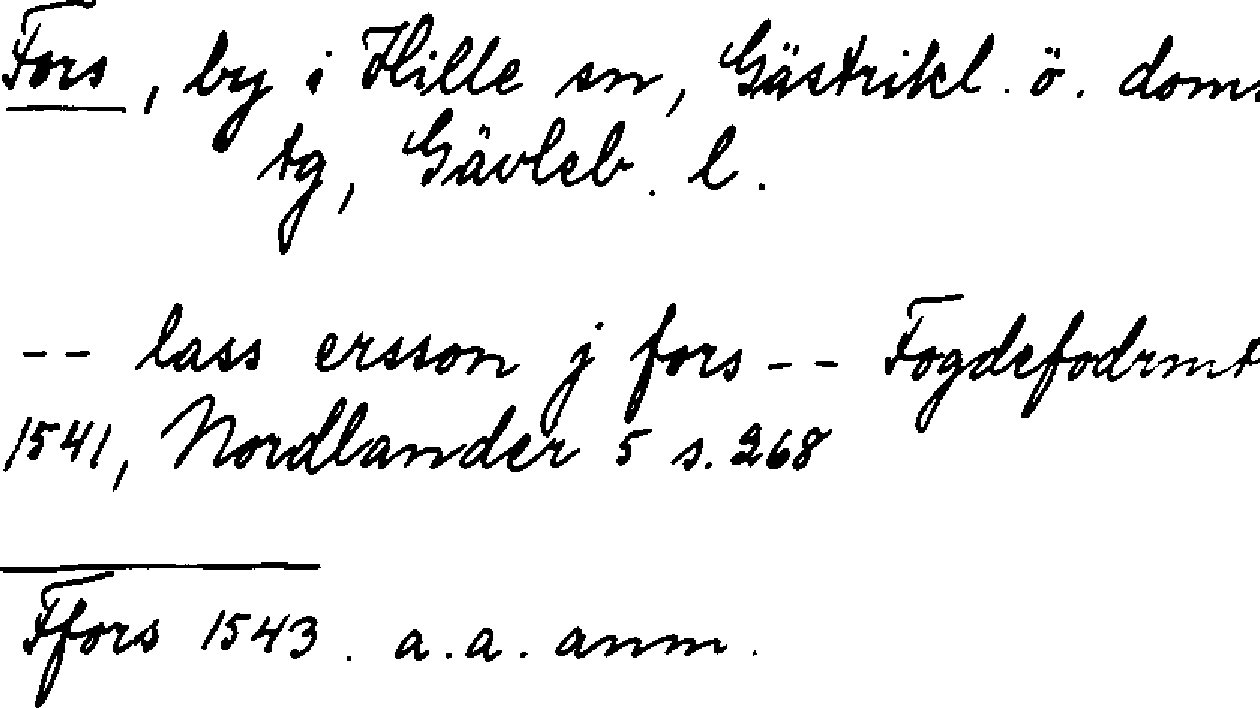 Fors, by i Hille sn, Gästrikl. ö. doms
tg, Gävleb. l.
-- lass ersson j fors -- Fogdefodrmt
1541, Nordlander 5 s. 268
Ffors 1543. a.a. anm.